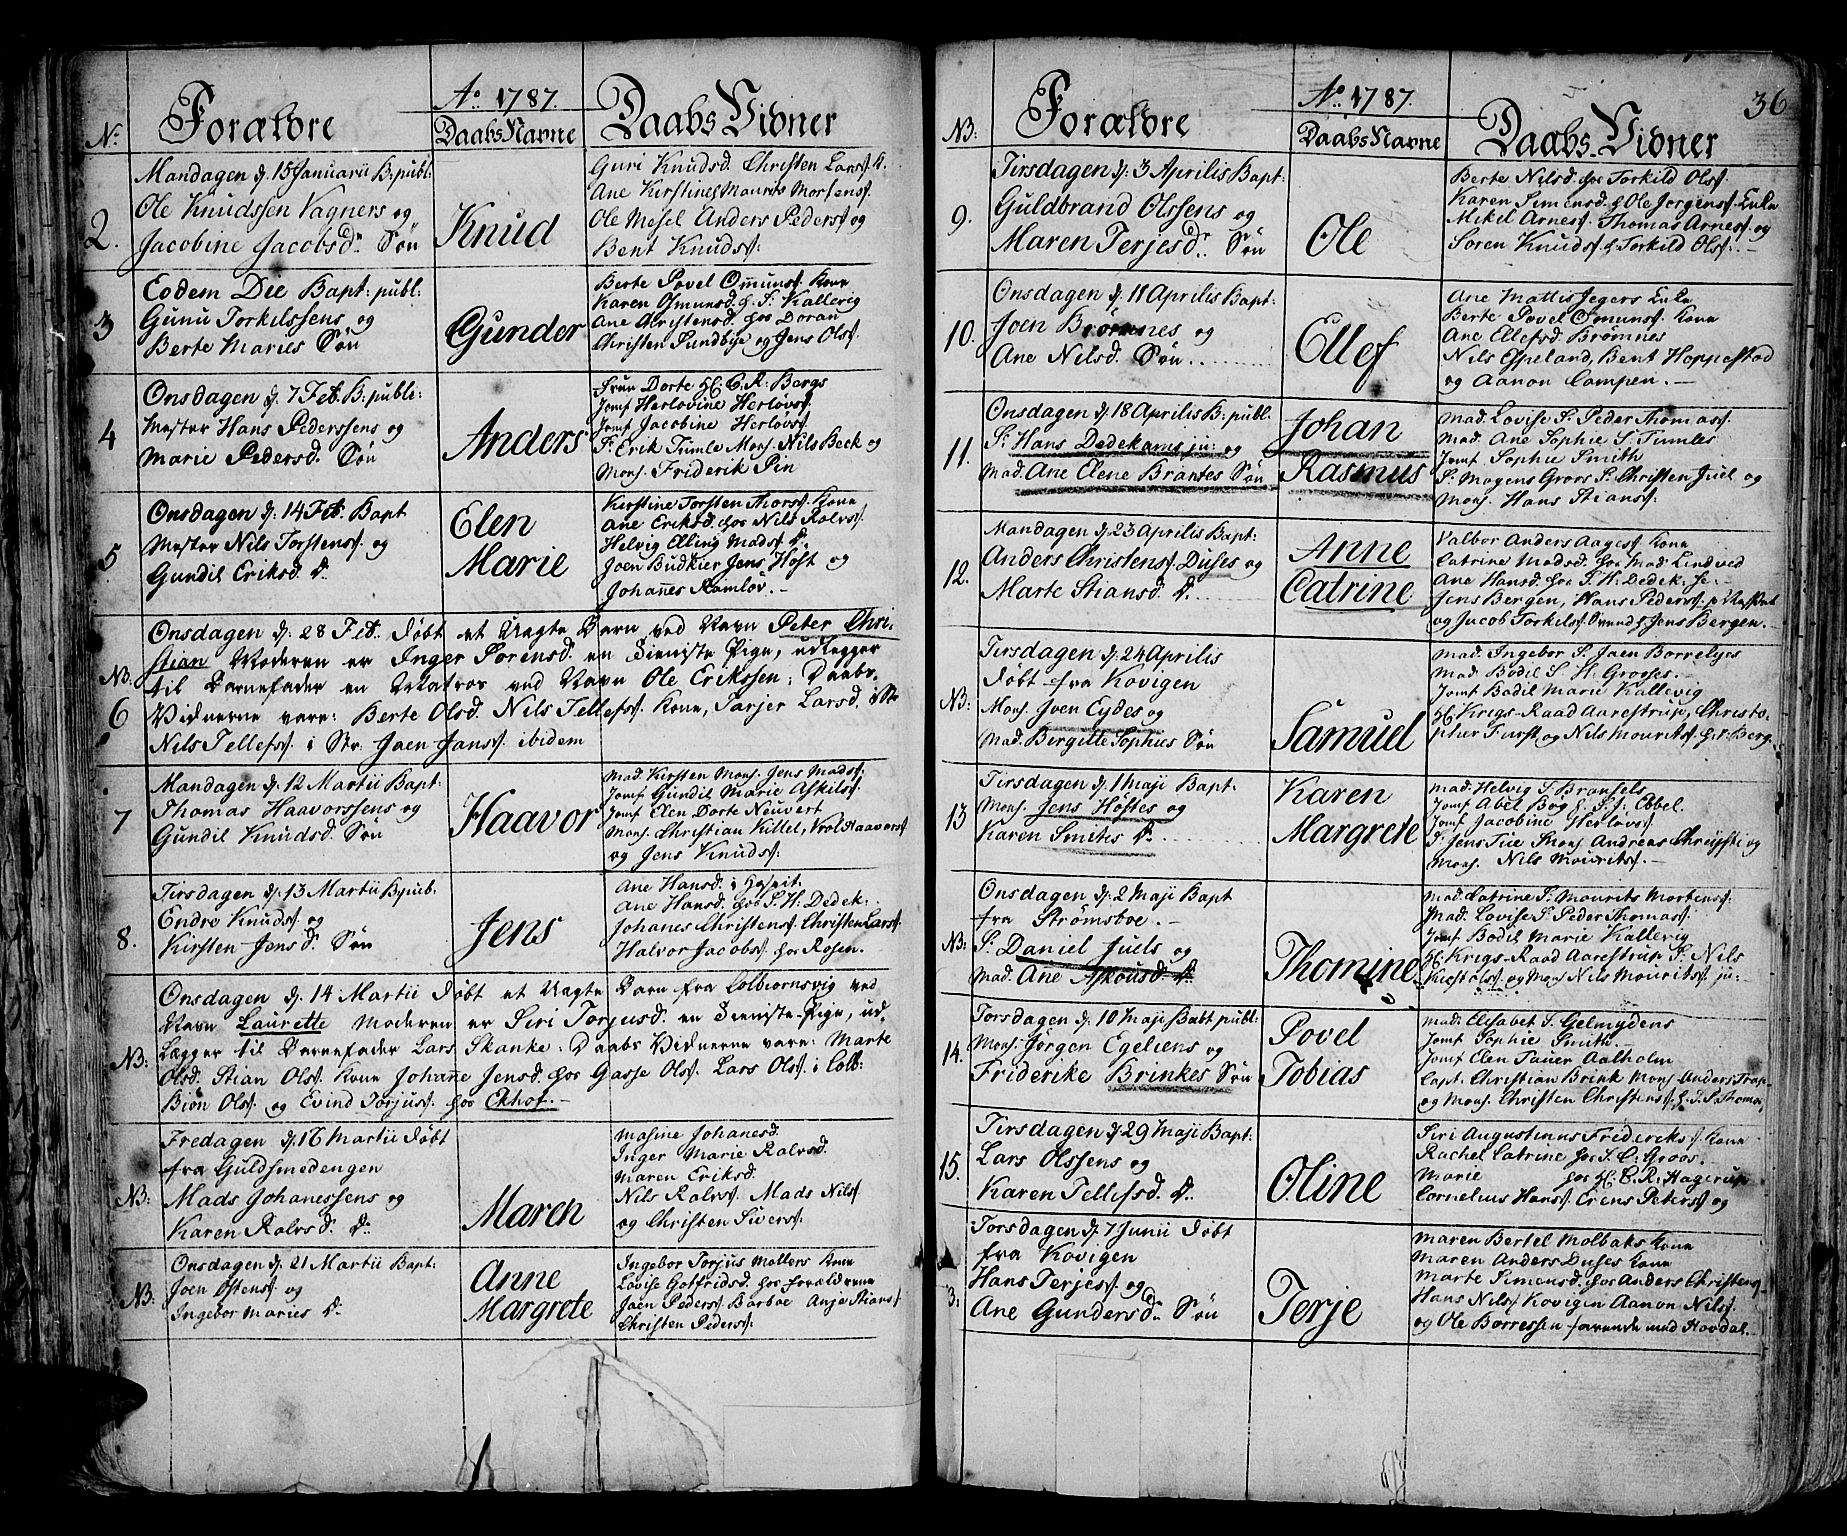 No. Forældre
Ao. 1787.
Daabs Navne
Daabs Vidner
2.
Mandagen d. 15 Januarii B. publ:
Ole Knudssen Vagners og
Jacobine Jacobsd. Søn
Knud
Guri Knudsd. Christen Larss. K.
Ane Kirstine Maurits Mortens.
Ole Mesel Anders Peders. og
Bent Knuds.
3
Eodem Die Bapt: publ:
Gunu Torkilssens og
Berte Maries Søn
Gunder
Berte Povel Omunds. Kone
Karen Osmunsd. h. S. Kallevig
Ane Christensd. hos Doran
Christen Sundbye og Jens Ols.
4
Onsdagen d. 7 Feb. B: publ:
Mester Hans Pederssens og
Marie Pedersd. Søn
Anders
Frue Dorte H. C. R: Bergs
Jomf Herlovine Herløvs.
Jomf Jacobine Herløvs.
Sr. Erik Tumle Mons. Nils Beck og
Mons. Friderik Pin
5
Onsdagen d. 14 Feb. Bapt
Mester Nils Torstens. og
Gundil Eriksd. D.
Elen
Marie
Kirstine Torsten Thors. Kone
Ane Eriksd. hos Nils Ralvs.
Helvig Elling Mads. D.
Joen Budkier Jens Høst og
Johanes Ramløv.
NB.
6
Onsdagen d. 28 Feb. Døbt et Uægte Barn ved Navn Peter Chri-
stian Moderen er Inger Sørensd. en Tieniste Pige, udlegger
til Barnefader en Matros ved Navn Ole Erikssen: Daabs
Vidnerne vare: Berte Olsd. Nils Tellefs. Kone, Tarjer Larsd. i Str
Nils Tellefs. i Str. Joen Jans. ibidem
7
Mandagen d. 12 Martii Bapt:
Thomas Haavorssens og
Gundil Knudsd. Søn
Haavor
Mad. Kirsten Mons. Jens Mads.
Jomf Gundil Marie Askils.
Jomf Elen Dorte Neuvert
Mons. Christian Kittel, Vrol Haavors.
og Jens Knuds.
8.
Tirsdagen d. 13 Martii B. pub:
Endre Knuds. og
Kirsten Jensd. Søn
Jens
Ane Hansd. i Hospit.
Ane Hansd. hos S. H: Dedek.
Johanes Christens. Christen Lars.
Halvor Jacobs. hos Rosen.
NB:
Onsdagen d. 14 Martii Døbt et Uægte Barn fra Colbiornsvig ved
Navn Laurette Moderen er Siri Torjusd. en Tieniste-Pige, ud-
lægger til Barnefader Lars Skanke: Daabs Vidnerne vare: Marte
Olsd. Stian Ols. Kone Johane Jensd. hos Gasse Ols. Lars Ols. i Colb:
Biøn Ols. og Evind Torjus. hos Ekhof.
NB:
Fredagen d. 16 Martii Døbt
fra Guldsmedengen
Mads Johanessens og
Karen Ralvsd. D.
Maren
Masine Johanesd.
Inger Marie Ralvsd.
Maren Eriksd.
Nils Ralvs. Mads Nils.
og Christen Sivers.
NB:
Onsdagen d. 21 Martii Bapt:
Joen Ostens. og
Ingebor Maries D.
Anne
Margrete
Ingebor Torjus Mollers Kone
Lovise Gotfridsd. hos Forældrene
Joen Peders. Barboe Anje Stians.
Christen Peders.
36
NB:
Forældre
Ao. 1787.
Daabs Navne
Daabs-Vidner
9.
Tirsdagen d. 3 Aprilis Bapt:
Guldbrand Olssens og
Maren Terjesd. Søn
Ole
Berte Nilsd. hos Torkild Ols.
Karen Simensd. h. Ole Jorgens. Enke
Mikel Arnes. Thomas Arnes. og
Soren Knuds. h. Torkild Ols.
10.
Onsdagen d. 11 Aprilis Bapt:
Joen Brømnes og
Ane Nilsd. Søn
Ellef
Ane Mattis Jegers Enke
Berte Povel Omuns. Kone
Ane Ellefsd. Brømnes
Nils Espeland, Bent Hoppestad
og Aanon Campen.
11.
Onsdagen d. 18 Aprilis B: publ.
Sr. Hans Dedekams jun: og
Mad. Ane Elene Brantes Søn
Johan
Rasmus
Mad. Lovise Sr. Peder Thomas.
Mad. Ane Sophie S. Tumles
Jomf Sophie Smith
Sr. Mogens Groos Sr. Christen Juel og
Mons. Hans Stians.
12.
Mandagen d. 23 Aprilis Bapt:
Anders Christens. Duses og
Marte Stiansd. D.
Anne
Catrine
Valbor Anders Aages. Kone
Catrine Madsd. hos Mad. Lindved
Ane Hansd. hos S. H: Dedek: se.
Jens Bergen, Hans Peders.
og Jacob Torkils. Svend h. Jens Bergen.
NB:
Tirsdagen d. 24 Aprilis
Døbt fra Kovigen
Mons. Joen Eydes og
Mad. Birgitte Sophies Søn
Samuel
Mad. Ingebor S. Joen Borrelyes
Mad. Bodil S H. Grosses.
Jomf Bodil Marie Kallevig
H. Krigs-Raad Aarestrup, Christo-
pher Furst og Nils Mourits. h. S. Berg.
13
Tirsdagen d. 1 Maji Bapt:
Mons. Jens Høstes og
Karen Smiths D.
Karen
Margrete
Mad. Helvig S. Bransels
Jomf Abel Bog h. S. J. Ebbel.
Jomf Jacobine Herløvs.
S. Jens Tue Mons. Andreas og
Mons. Nils Mourits.
NB:
Onsdagen d. 2 Maji Bapt
fra Strømsboe.
S. Daniel Juels og
Mad. Ane Askousd. D.
Thomine
Mad. Catrine Sr. Mourits Mortens.
Mad. Lovise S. Peder Thomas.
Jomf Bodil Marie Kallevig
H. Krigs-Raad Aarestrup S. Nils
og Mons Nils Mourits. ju:
14.
Torsdagen d. 10 Maji Babt publ:
Mons. Jørgen Egeliens og
Friderike Brinkes Søn
Povel
Tobias
Mad: Elisabet S. Gelmydens
Jomf Sophie Smith.
Jomf Elen Tauer Aalholm
Capt. Christian Brink Mons. Anders Trap
og Mons. Christen Christens. h. S. P. Thomas.
15.
Tirsdagen d. 29 Maji Bapt:
Lars Olssens og
Karen Tellefsd. D.
Oline
Siri Augustinus Frideriks. Kone
Rachel Catrine hos S. C: Groos.
Marie hos H. C. R: Hagerup
Cornelius Hans. Erens Peters. og
3:
Torsdagen d. 7 Junii Døbt
fra Kovigen
Hans Terjes. og
Ane Gundersd. Søn
Terje
Maren Bertel Molbaks Kone
Maren Anders Duses Kone
Marte Simensd. hos Anders Christens.
Hans Nils. Kovigen Aanon Nils.
og Ole Borressen farende med Hovdal.